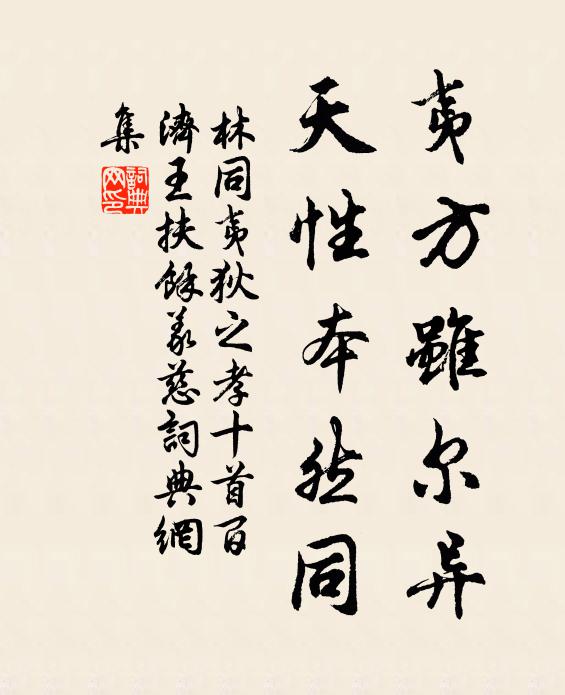 夷方雖尔异
天性本然同
林同夷狄之孝十首百
濟王扶餘義慈詞典網
集
詞典
网印